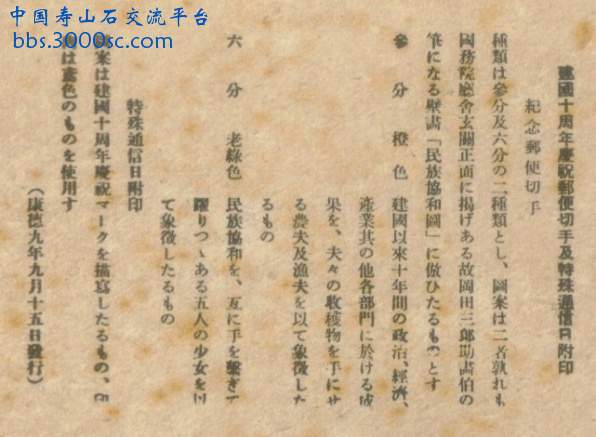 中国寿山石交流平台
bbs.3000sc.com
建國十周年慶祝郵便切手及特殊通信日附印
紀念郵便切手
種類は參分及六分の二種類とし、圖案は二者孰れも
國務院廳舍玄關正面に揭げある故岡田三郎助畫伯の
筆になる壁畫「民族協和圖」に倣ひたるものとす
參分 橙色 建國以來十年間の政治、經濟、
產業其の他各部門に於ける成
果を、夫々の收穫物を手にせ
る農夫及漁夫を以て象徵した
るもの
六分 老綠色 民族協和を、互に手を繫ぎて
躍りつゝある五人の少女を以
て象徵したるもの
特殊通信日附印
案は建國十周年慶祝マークを描寫したるもの、印
は鳶色のものを使用す
(康德九年九月十五日發行)